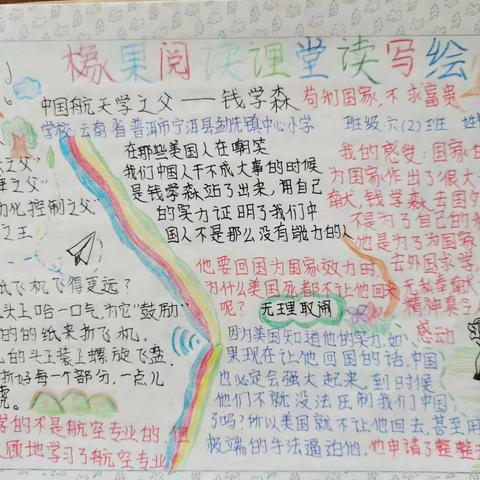 橡果阅读课堂读写绘
中国航天学之父——钱学森 苟利国家,不求富贵
学校:云南省普洱市宁洱县勐先镇中心小学 班级:六(2)班
在那些美国人在嘲笑
我们中国人干不成大事的时候
是钱学森站了出来,用自己
的实力证明了我们中
国人不是那么没有能力的人
他要回国为国家效力时,
为什么美国死都不让他回来
呢?
无理取闹
因为美国知道他的实力,如
果现在让他回国的话,中国
也必定会强大起来,到时候
他们不就没法压制我们中国
了吗?所以美国就不让他回去,甚至用
极端的手法逼迫他,他申请了整整
我的感受:国家
为国家作出了很大
献,钱学森去国外
不是为了自己的
他是为了为国家
去外国求学
精神真令
感动
之父”
之父”
动化控制之父”
之王
纸飞机飞得更远?
头上哈一口气为它“鼓励”
的的纸来折飞机.
的头上装上螺放飞盘.
折好每一个部分,一点儿
虎。
的不是航空专业的,但
顾地学习了航空专业